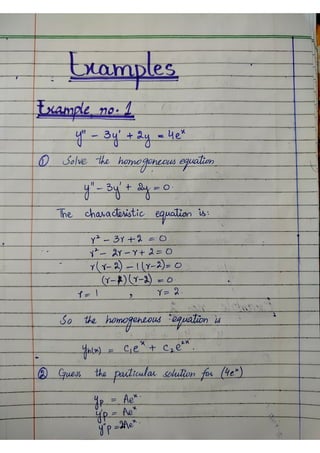 Examples
Example no. 1
y'' - 3y' + 2y = 4eˣ
① Solve the homogeneous equation
y'' - 3y' + 2y = 0
The characteristic equation is:
r² - 3r + 2 = 0
r² - 2r - r + 2 = 0
r(r-2) - 1(r-2) = 0
(r-1)(r-2) = 0
r = 1 , r = 2
So the homogeneous equation is
yₕ(x) = C₁eˣ + C₂e²ˣ.
② Guess the particular solution for (4eˣ)
yp = Aeˣ
y'p = Aeˣ
y''p = 2Aeˣ